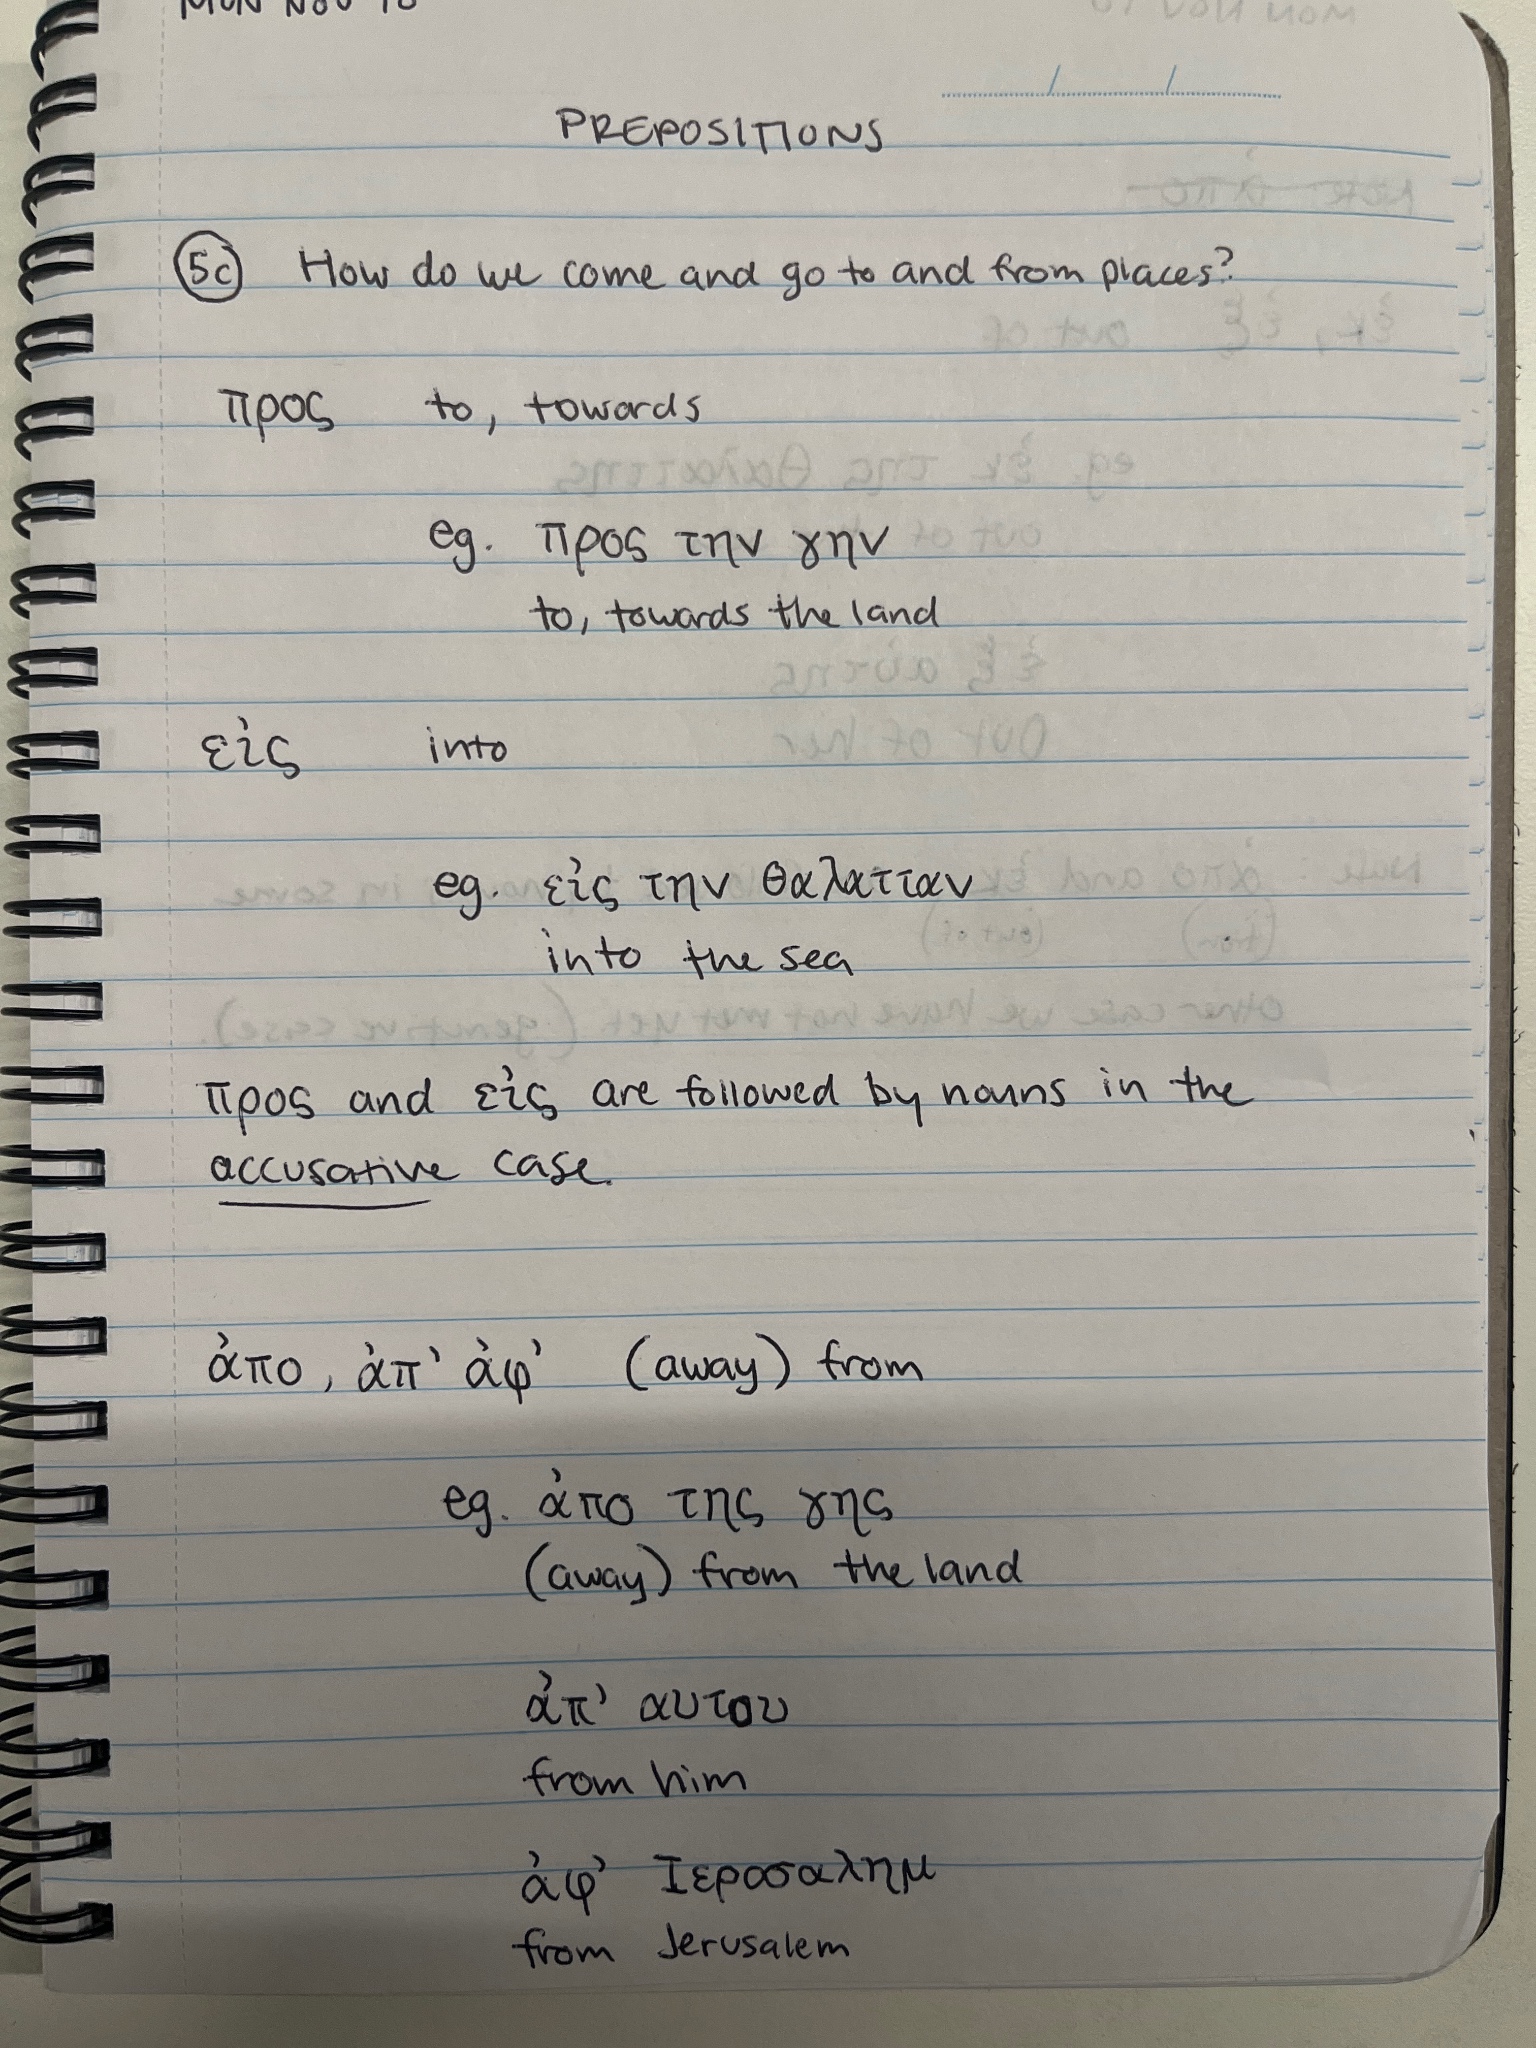 MON NOV 10
PREPOSITIONS
5c How do we come and go to and from places?
προς to, towards
eg. προς την γην
to, towards the land
εἰς into
eg. εἰς την θαλατταν
into the sea
προς and εἰς are followed by nouns in the
accusative case.
ἀπο, ἀπ' ἀφ' (away) from
eg. ἀπο της γης
(away) from the land
ἀπ' αυτου
from him
ἀφ' Ιεροσαλημ
from Jerusalem